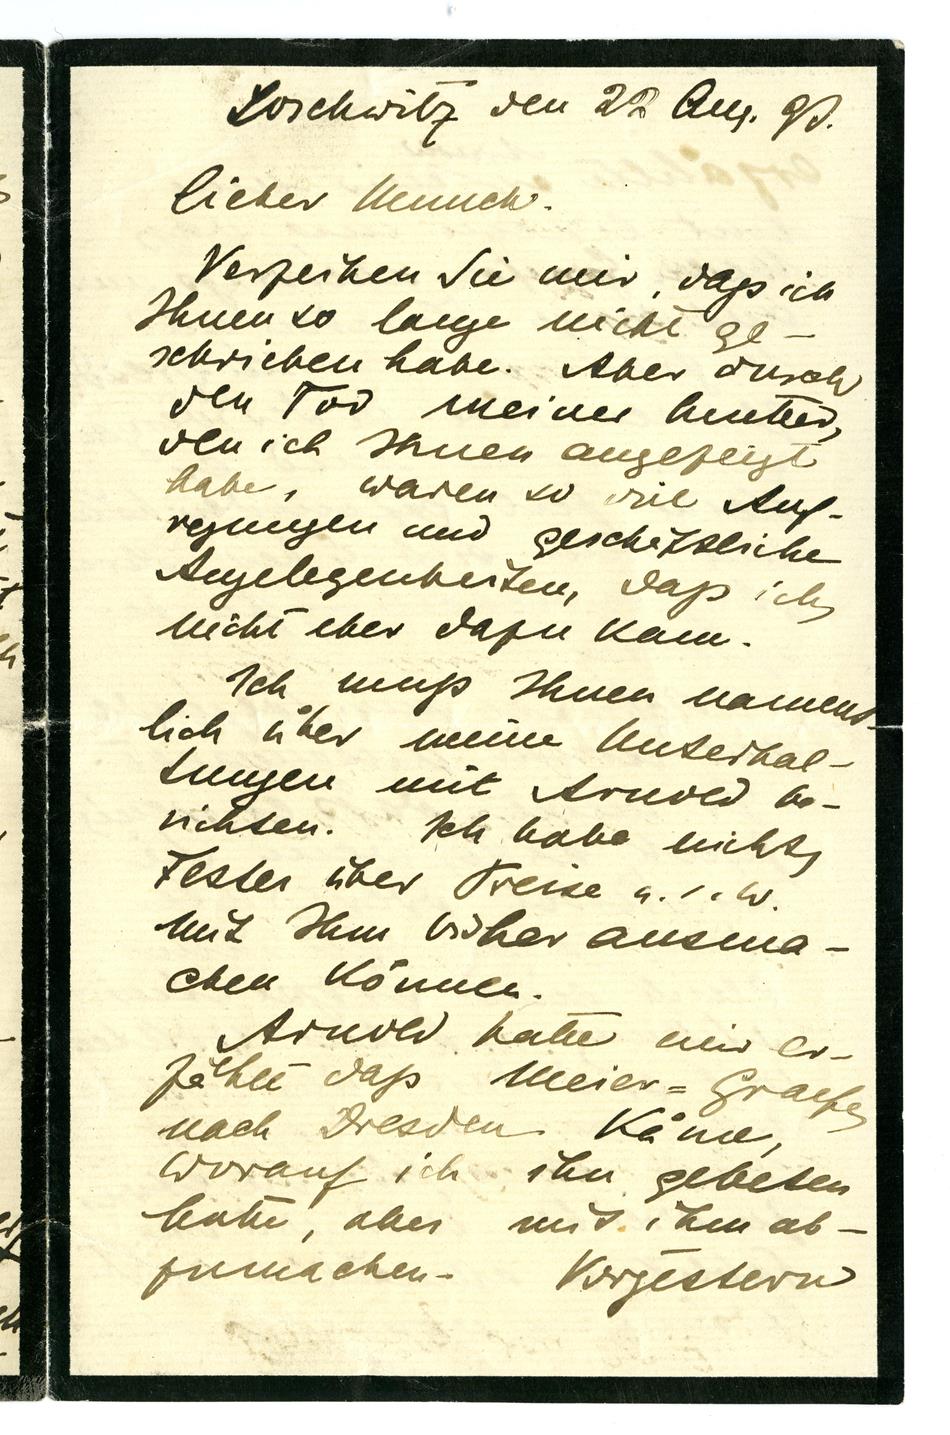 Loschwitz den 22 Aug. 98.
Lieber Munch.
Verzeihen Sie mir, daß ich
Ihnen so lange nicht ge-
schrieben habe. Aber durch
den Tod meiner Mutter,
den ich Ihnen angezeigt
habe, waren so viel Auf-
regungen und geschäftliche
Angelegenheiten, daß ich
nicht eher dazu kam.
Ich muß Ihnen nament-
lich über meine Unterhal-
tungen mit Arnold be-
richten. Ich habe nichts
Festes über Preise u.s.w.
mit Ihm bisher ausma-
chen können.
Arnold hatte mir er-
zählt daß Meier=Graefe
nach Dresden käme,
worauf ich ihn gebeten
hatte, alles mit ihm ab-
zumachen. Vorgestern